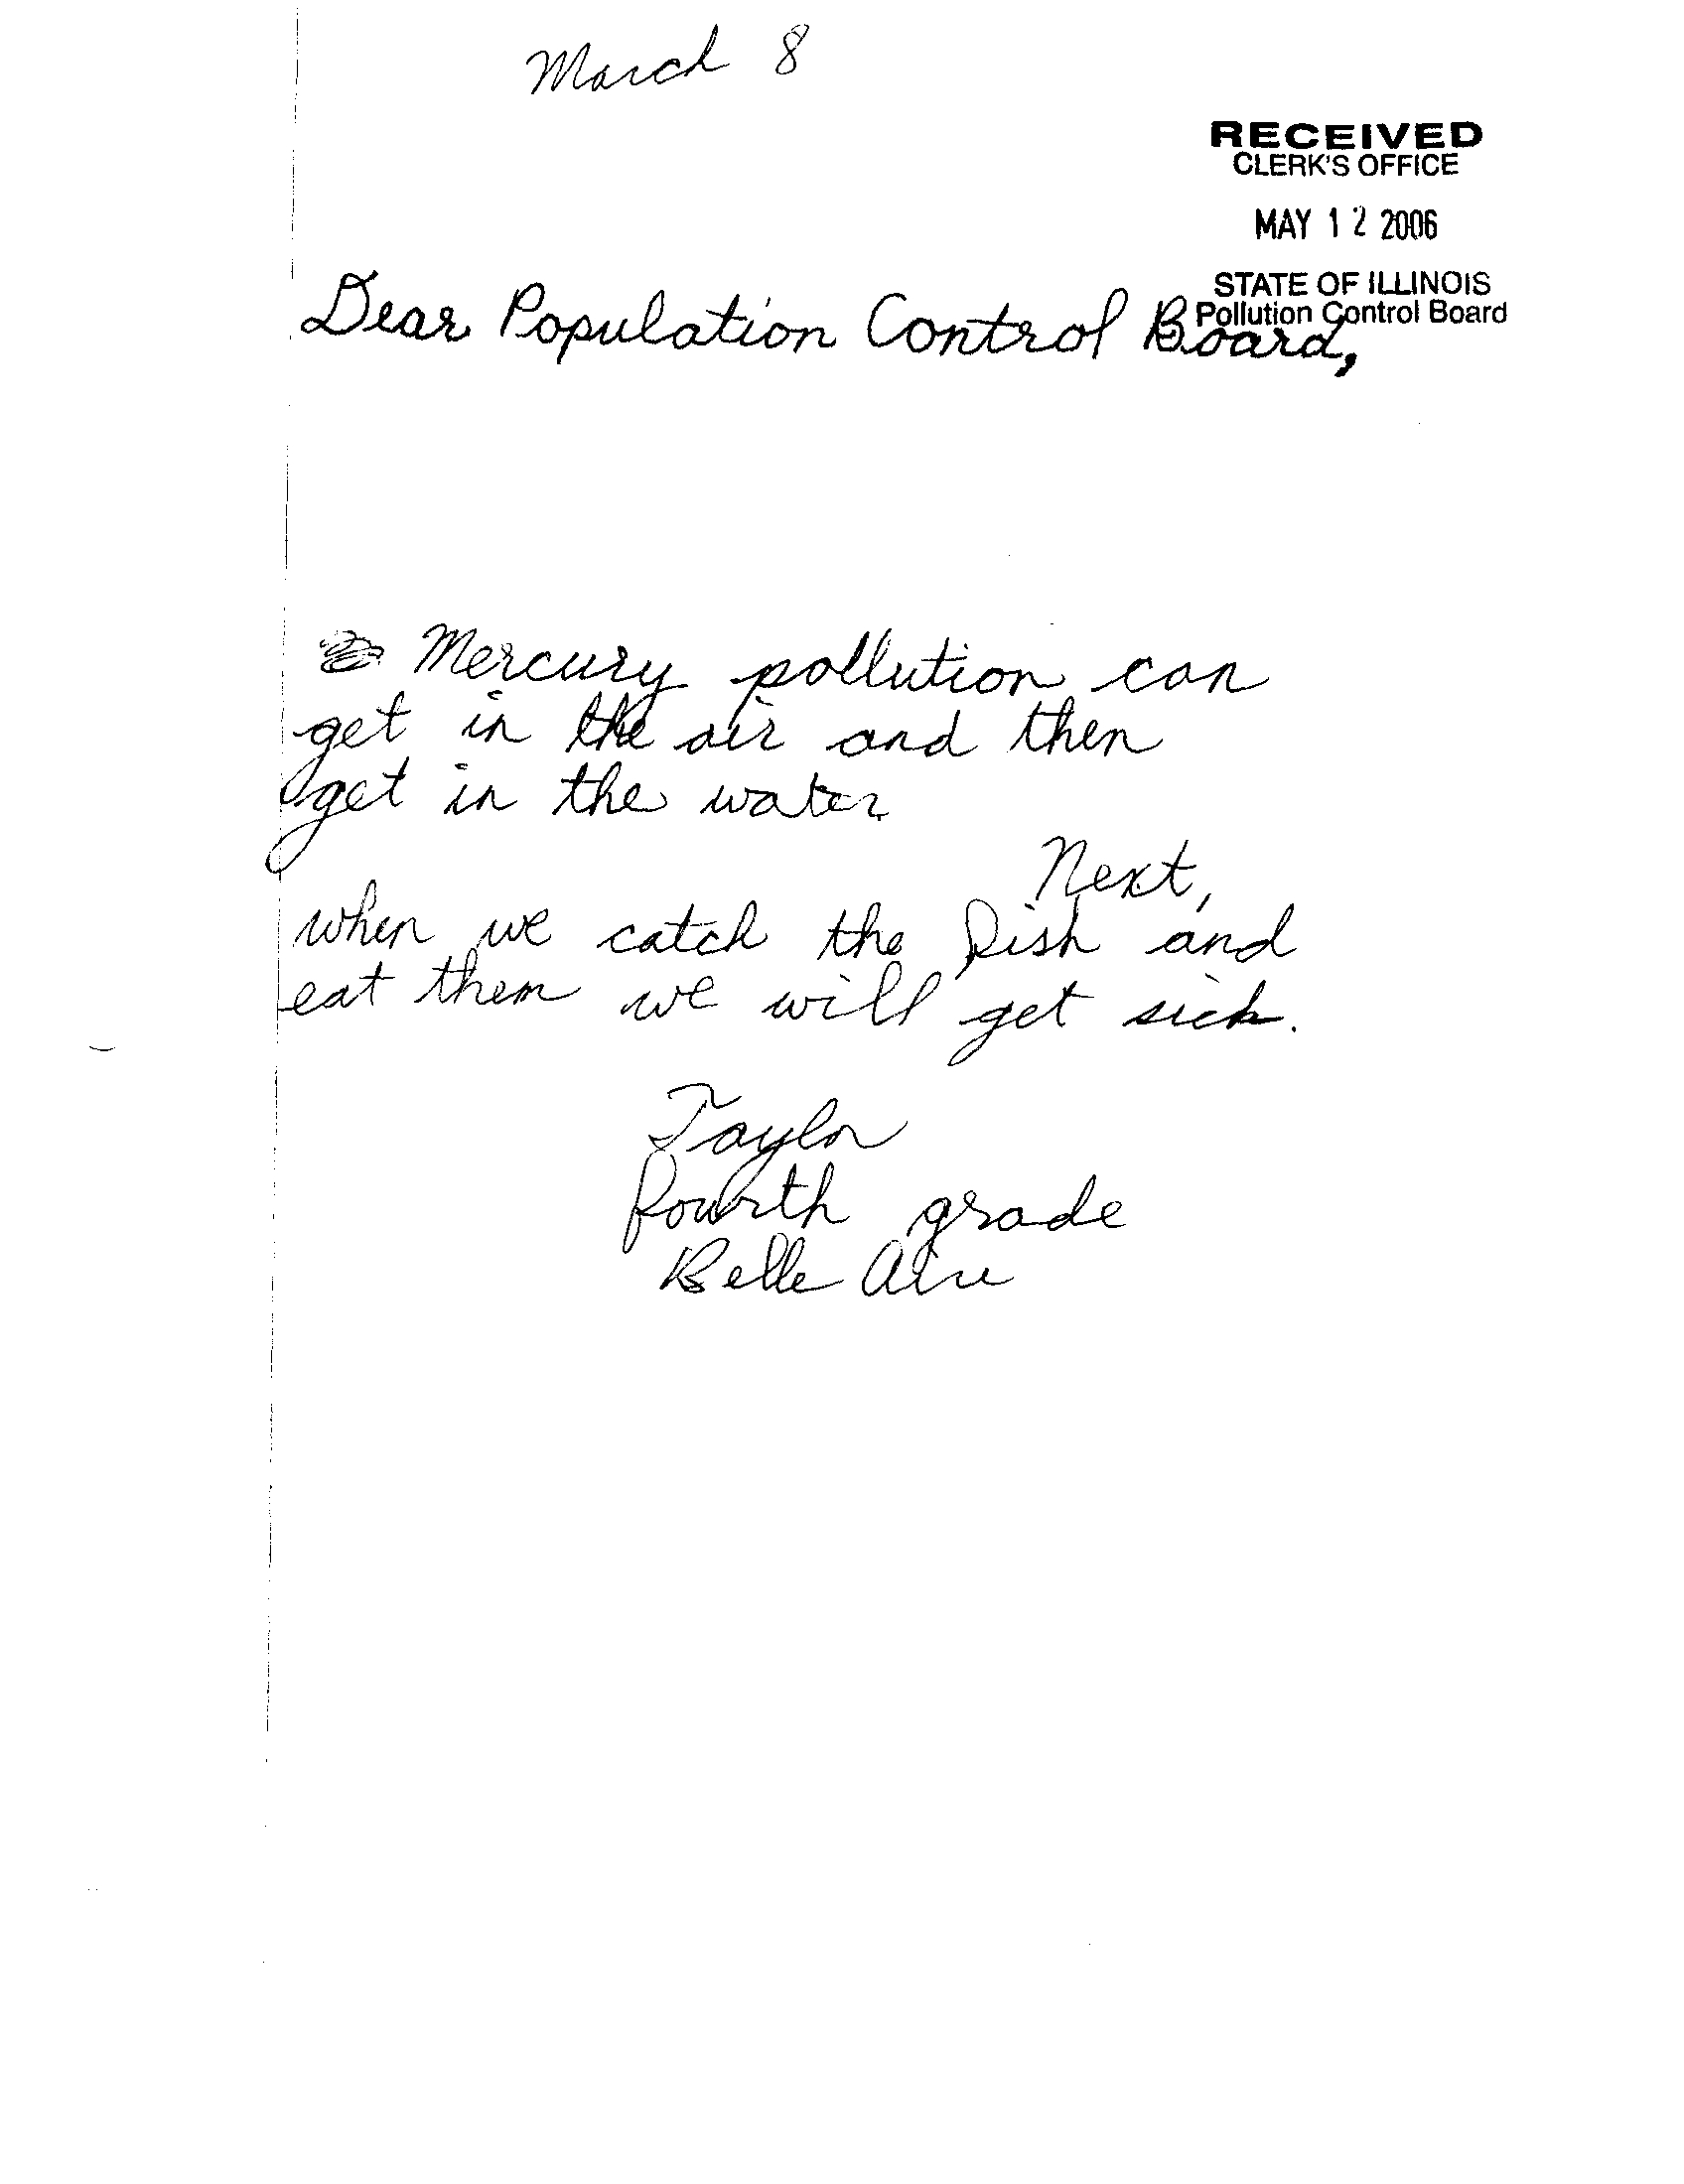 March 8
RECEIVED
CLERK'S OFFICE
MAY 12 2006
STATE OF ILLINOIS
Pollution Control Board
Dear Population Control Board,
Mercury pollution can
get in the air and then
get in the water
Next,
when we catch the fish and
eat them we will get sick.
Taylor
fourth grade
Belle Aire